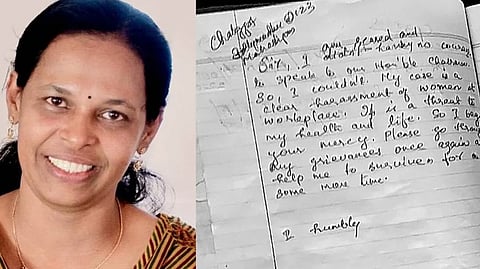 Sir, I was scared and
didn't having no courage
to speak to our Hon'ble Chairman
So, I couldn't. My case is a
clear harassment of women at
workplace. It is a threat to
my health and life. So I beg
your mercy. Please go through
my grievances once again a
help me to survive for a
some more time.
I humbly